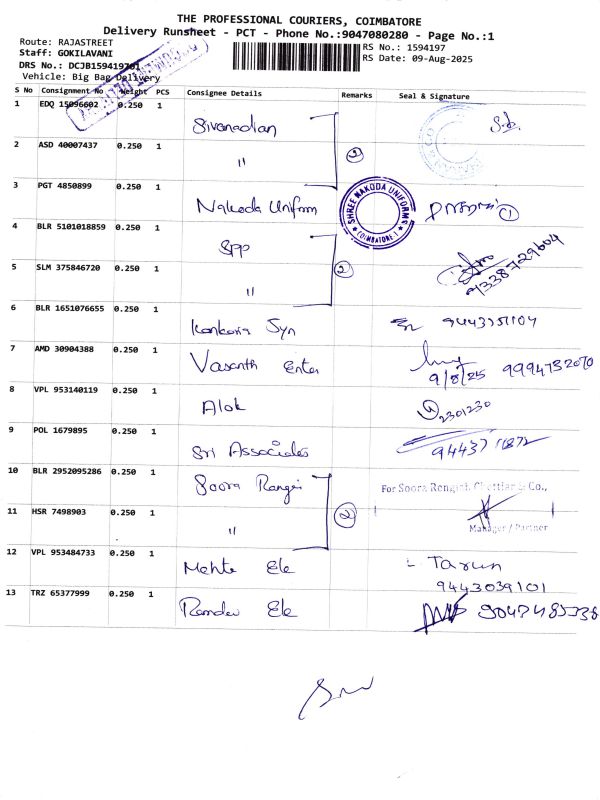 THE PROFESSIONAL COURIERS, COIMBATORE
Delivery Runsheet - PCT - Phone No.:9047080280 - Page No.:1
Route: RAJASTREET
RS No.: 1594197
Staff: GOKILAVANI
RS Date: 09-Aug-2025
DRS No.: DCJB159419701
Vehicle: Big Bag Delivery
S No Consignment No Weight PCS Consignee Details Remarks Seal & Signature
1 EDQ 15096602 0.250 1 Sivanadian
2 ASD 40007437 0.250 1 " 2
3 PGT 4850899 0.250 1 Nakoda Uniform 1
SHREE NAKODA UNIFORMS
COIMBATORE-1
4 BLR 5101018859 0.250 1 SPP
5 SLM 375846720 0.250 1 " 2 9338729604
6 BLR 1651076655 0.250 1 Kankaria Syn
7 AMD 30904388 0.250 1 Vasanth Enter 9/8/25
8 VPL 953140119 0.250 1 Alok 2301230
9 POL 1679895 0.250 1 Sri Associates
10 BLR 2952095286 0.250 1 Soora Rangi For Soora Rengiah Chettiar & Co.,
11 HSR 7498903 0.250 1 " 2
Manager / Partner
12 VPL 953484733 0.250 1 Mehta Ele Tarun
9443039101
13 TRZ 65377999 0.250 1 Ramdev Ele